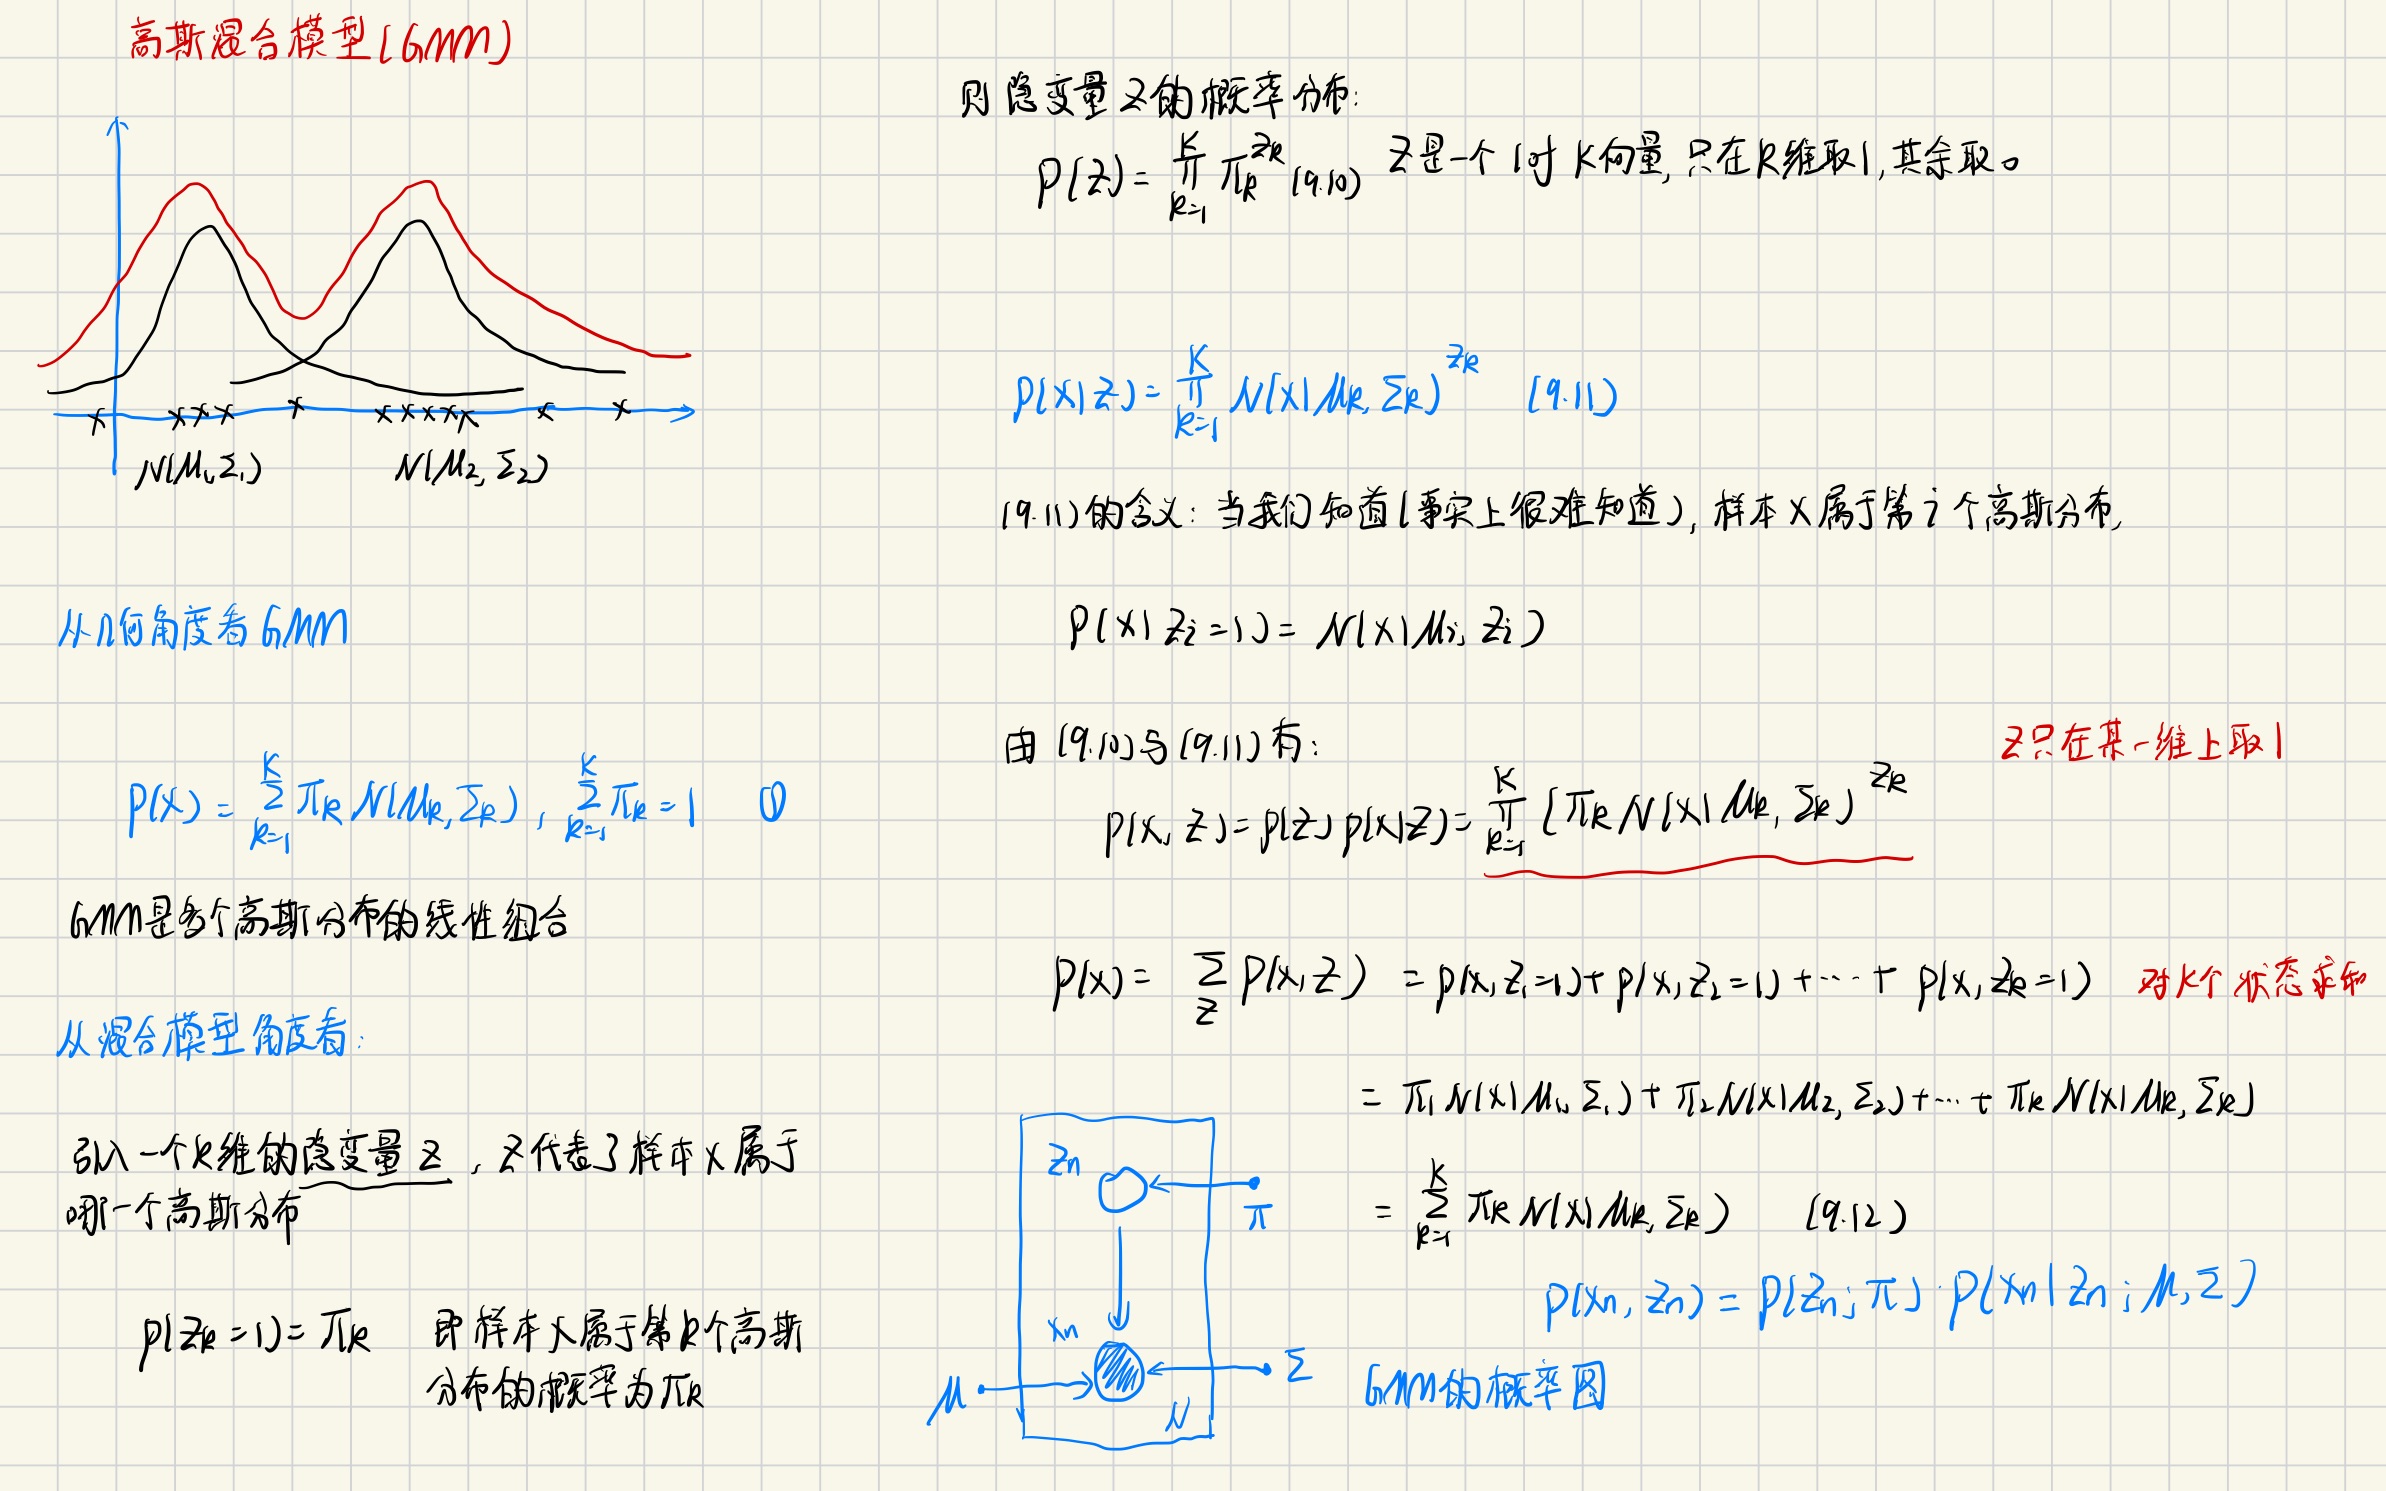 高斯混合模型(GMM)
N(μ₁,Σ₁) N(μ₂,Σ₂)
从几何角度看GMM
P(x) = Σ_{k=1}^{K} π_k N(μ_k,Σ_k), Σ_{k=1}^{K} π_k = 1 ①
GMM是多个高斯分布的线性组合
从混合模型角度看:
引入一个K维的隐变量z，z代表了样本x属于
哪一个高斯分布
p(z_k=1) = π_k 即样本x属于第k个高斯
分布的概率为π_k
则隐变量z的概率分布:
P(z) = ∏_{k=1}^{K} π_k^{z_k} (9.10) z是一个1对K向量,只在k维取1,其余取0
P(x|z) = ∏_{k=1}^{K} N(x|μ_k,Σ_k)^{z_k} (9.11)
(9.11)的含义: 当我们知道(事实上很难知道), 样本x属于第i个高斯分布,
P(x|z_i=1) = N(x|μ_i, z_i)
由(9.10)与(9.11)有:
z只在某一维上取1
p(x,z) = p(z) p(x|z) = ∏_{k=1}^{K} (π_k N(x|μ_k,Σ_k)^{z_k}
p(x) = Σ_z p(x,z) = p(x,z₁=1) + p(x,z₂=1) + ⋯ + p(x,z_k=1) 对K个状态求和
= π₁N(x|μ₁,Σ₁) + π₂N(x|μ₂,Σ₂) + ⋯ + π_k N(x|μ_k,Σ_k)
= Σ_{k=1}^{K} π_k N(x|μ_k,Σ_k) (9.12)
p(x_n,z_n) = p(z_n;π)·p(x_n|z_n;μ,Σ)
GMM的概率图
z_n
π
x_n
Σ
μ
N